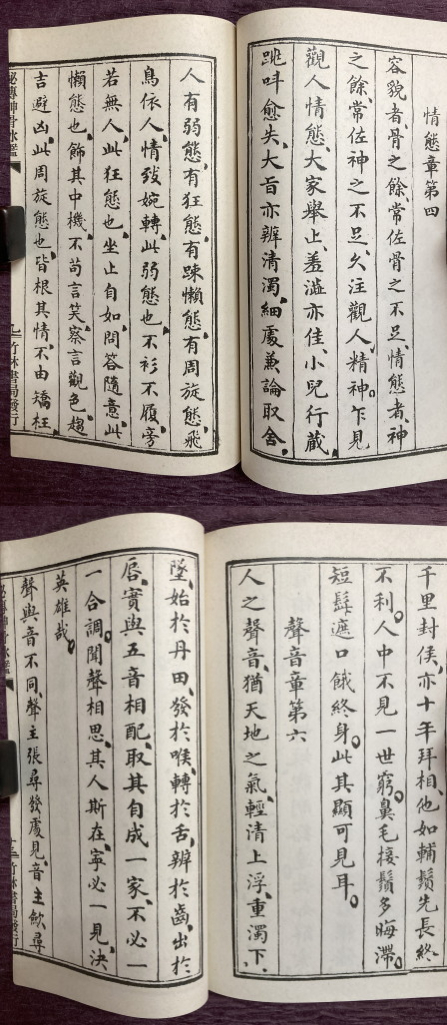 情態章第四
容貌者、骨之餘、常佐骨之不足、情態者、神
之餘、常佐神之不足、久注觀人精神。乍見
觀人情態、大家舉止、羞澁亦佳、小兒行藏、
跳呌愈失、大旨亦辨清濁、細處兼論取舍、
人有弱態、有狂態、有踈懶態、有周旋態、飛
鳥依人、情致婉轉、此弱態也、不衫不履、旁
若無人、此狂態也、坐止自如、問答隨意、此
懶態也、飾其中機、不苟言笑、察言觀色、趨
吉避凶、此周旋態也、皆根其情、不由矯枉、
秘傳神骨冰鑑 七 竹林書局發行
千里封侯、亦十年拜相、他如輔鬚先長終
不利。人中不見一世窮。鼻毛接鬚多晦滯。
短髭遮口餓終身。此其顯可見耳。
聲音章第六
人之聲音、猶天地之氣、輕清上浮、重濁下、
墜、始於丹田、發於喉、轉於舌、辨於齒、出於
唇、實與五音相配、取其自成一家、不必一
一合調、聞聲相思、其人斯在、寧必一見決
英雄哉。
聲與音不同、聲主張、尋發處見、音主歛、尋
秘傳神骨冰鑑 竹林書局發行